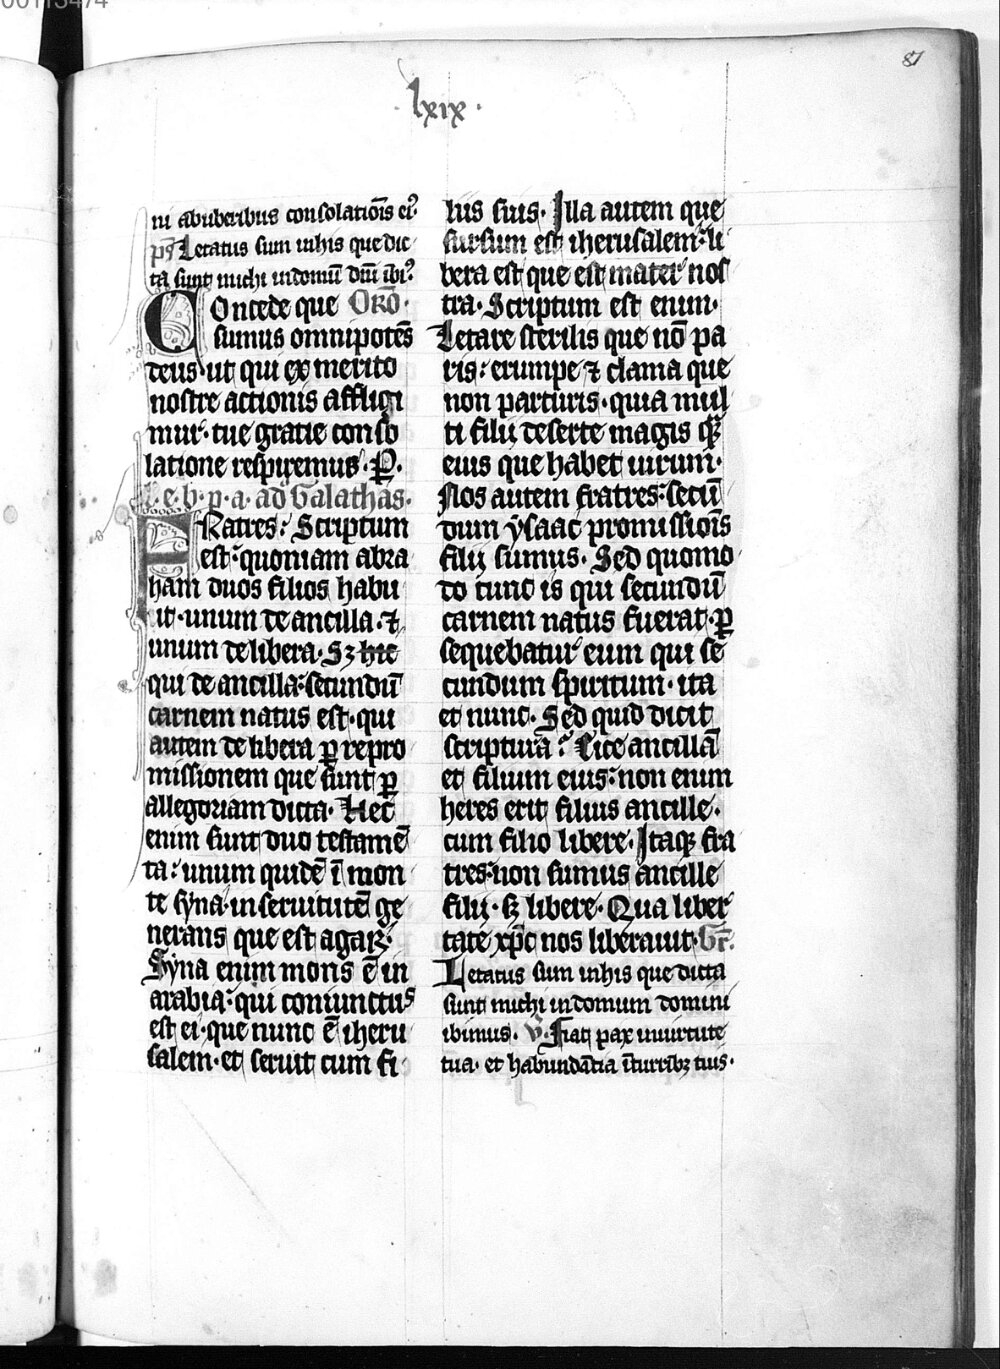 00113474
87
lxix
ni abuberibus consolatiōis eiꝰ
ps̄ Letatus sum inhis que dic
ta sunt michi indomū dn̄i ibiꝰ
Concede que Orō
sumus omnipotēs
deus ut qui ex merito
nostre actionis affligi
mur· tue gratie conso
latione respiremus· P̱.
le· b· p· a· ad Galathas·
Fratres: Scriptum
est: quoniam abra
ham duos filios habu
it· unum de ancilla· ⁊
unum de libera· Sꝫ hic
qui de ancilla: secundū
carnem natus est· qui
autem de libera ꝑ repro
missionem que sunt ꝑ
allegoriam dicta· Hec
enim sunt duo testamē
ta: unum quidē ī mon
te syna· in seruitutē ge
nerans que est agar·
Syna enim mons ē in
arabia: qui coniunctus
est ei· que nunc ē iheru
salem· et seruit cum fi
lus suis· Illa autem que
sursum est iherusalem: li
bera est que est mater nos
tra· Scriptum est enim·
Letare sterilis que nō pa
ris: erumpe ⁊ clama que
non parturis· quia mul
ti filij deserte magis qᷓ
eius que habet uirum·
Nos autem fratres: secū
dum ysaac promissiōis
filij sumus· Sed quomo
do tunc is qui secundū
carnem natus fuerat· ꝑ
sequebatur eum qui se
cundum spiritum· ita
et nunc· Sed quid dicit
scriptura? Eice ancillā
et filium eius: non enim
heres erit filius ancille·
cum filio libere· Itaqꝫ fra
tres: non sumus ancille
filij· sꝫ libere· Qua liber
tate xp̄c nos liberauit· Gr̄.
Letatus sum inhis que dicta
sunt michi indomum domini
ibimus· V̇· Fiat pax inuirtute
tua· et habundātia īturribꝫ tuis·